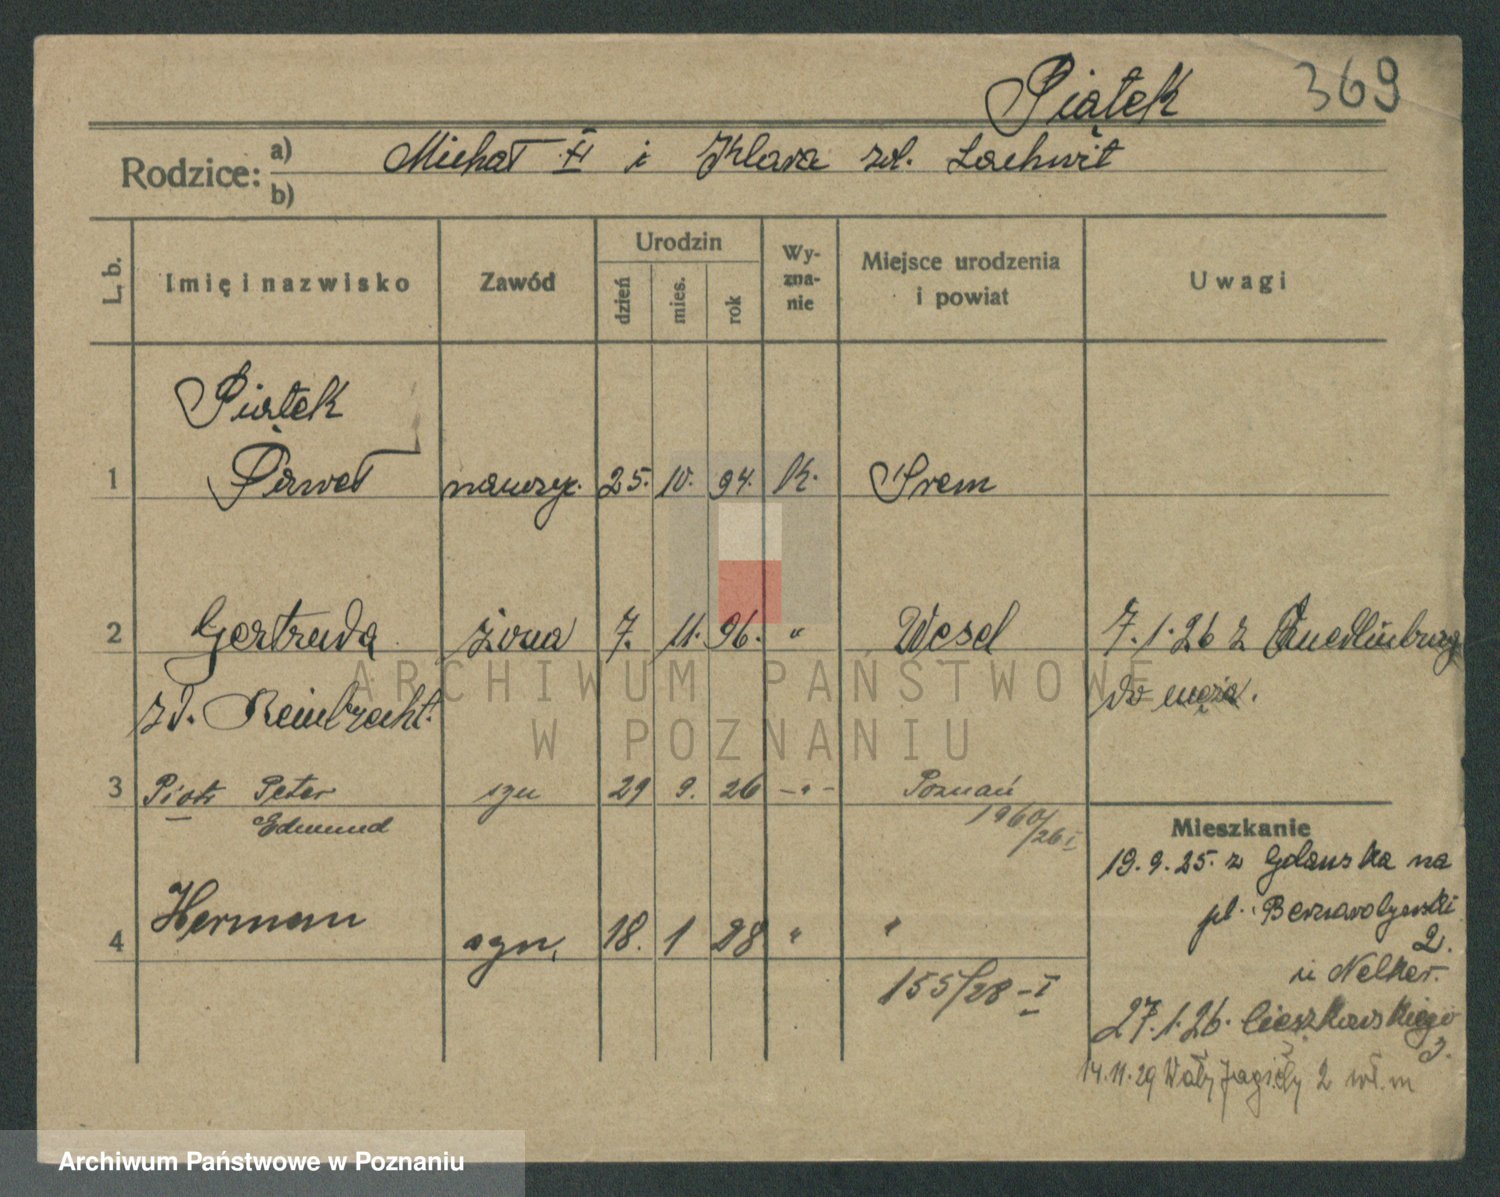 Piątek 369
Rodzice: a) Michał II i Klara zd. Lachwit
b)
L. b. Imię i nazwisko Zawód Urodzin dzień mies. rok Wy-zna-nie Miejsce urodzenia i powiat Uwagi
Piątek
1 Paweł nauczyc. 25. 10. 94. K. Śrem
2 Gertruda żona 7. 11. 96. " Wesel 7.1.26 z Quedlinburg
zd. Reinbrecht. do męża.
3 Piotr Peter syn 29 9. 26 -"- Poznań
Edmund 1960/26 I
Mieszkanie
19.9.25. z Gdańska na
pl. Bernardyński
2.
4 Herman syn, 18. 1 28 " "
u Nelker.
155/28-I
27.1.26. Cieszkowskiego
3.
14.11.29 Wały Jagiełły 2 wł. m
ARCHIWUM PAŃSTWOWE
W POZNANIU
Archiwum Państwowe w Poznaniu